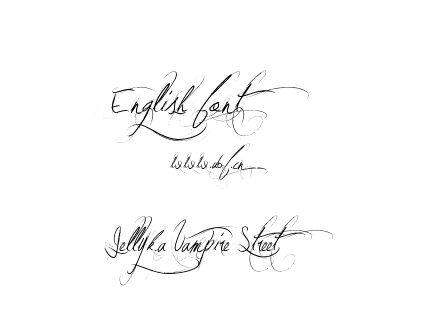 English font
www.dof.cn
Jellyka Vampire Street